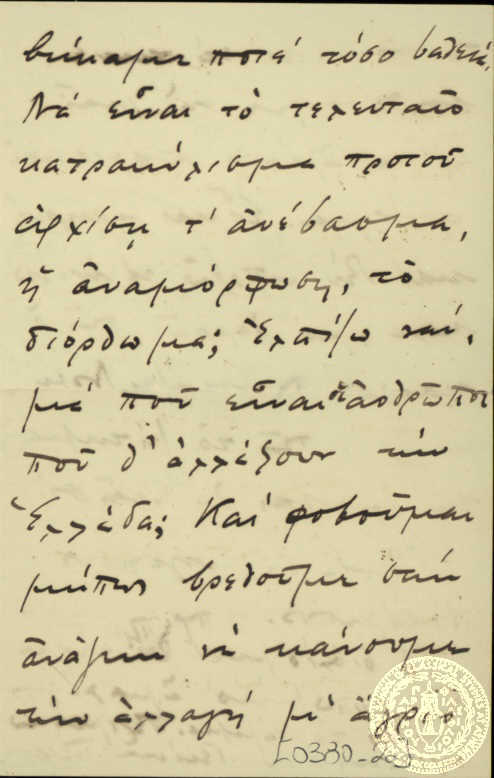 βήκαμε ποτέ τόσο βαθειά.
Νά εἶναι τὸ τελευταῖο
κατρακύλισμα προτοῦ
ἀρχίσῃ τ' ἀνέβασμα,
ἡ ἀναμόρφωση, τὸ
διόρθωμα; Ἐλπίζω ναί,
μά ποῦ εἶναι οἱ ἀνθρῶποι
ποῦ θ' ἀλλάξουν τὴν
Ἑλλάδα; Καί φοβοῦμαι
μήπως βρεθοῦμε στὴν
ἀνάγκη νὰ κάνουμε
τὴν ἀλλαγή μ' ἄγριο
E0330-20